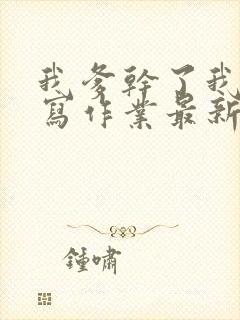 我爹幹了我
寫作業最新
鍾嘯